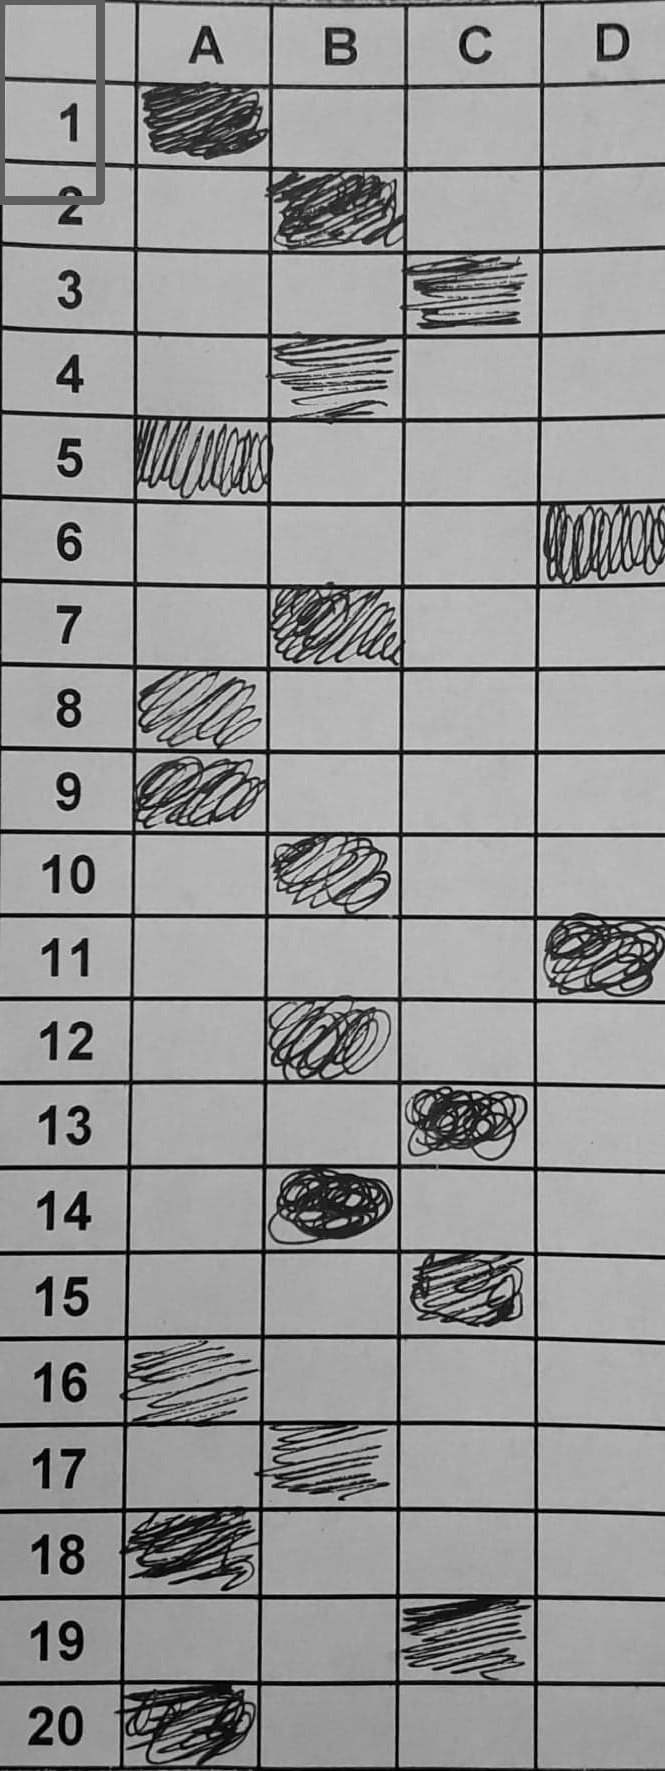 A B C D
1
2
3
4
5
6
7
8
9
10
11
12
13
14
15
16
17
18
19
20